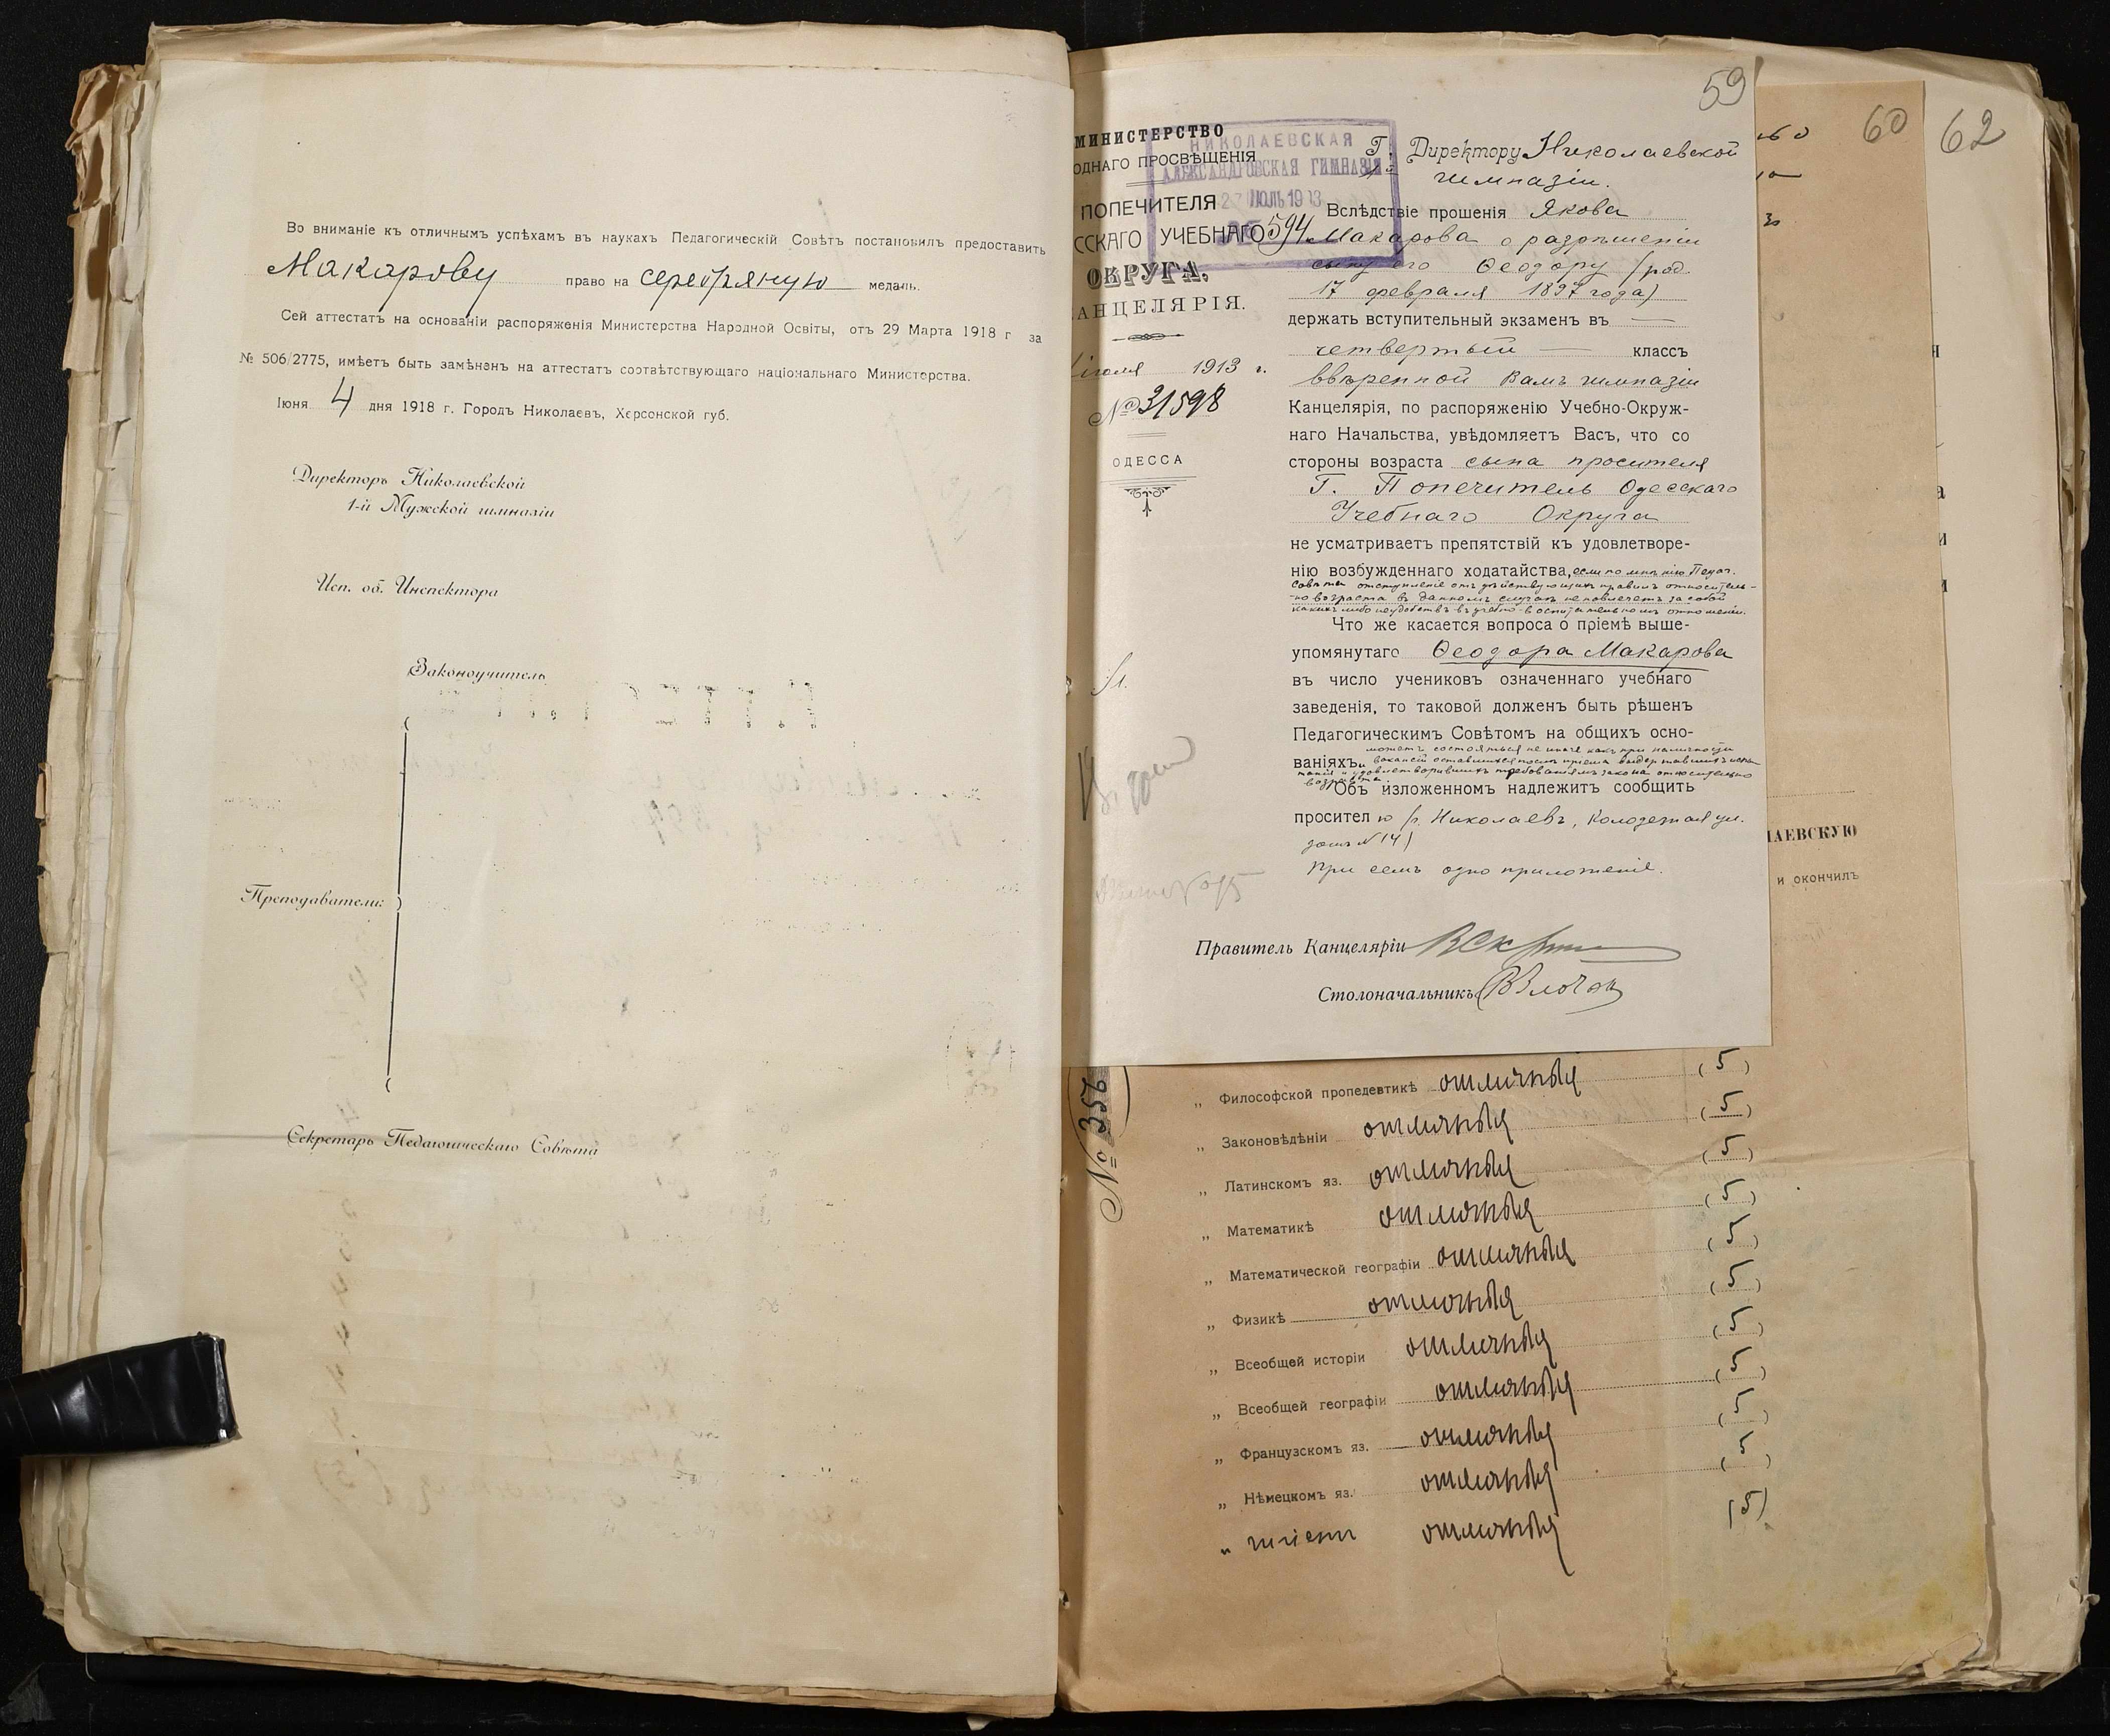 Во вниманіе къ отличнымъ успѣхамъ въ наукахъ Педагогическій Совѣтъ постановилъ предоставить
Макарову право на серебряную медаль.
Сей аттестатъ на основаніи распоряженія Министерства Народной Освіты, отъ 29 Марта 1918 г за
№ 506/2775, имѣетъ быть замѣненъ на аттестатъ соотвѣтствующаго національнаго Министерства.
Іюня 4 дня 1918 г. Городъ Николаевъ, Херсонской губ.
Директоръ Николаевской
1-й Мужской гимназіи
Исп. об. Инспектора
Законоучитель
Преподаватели:
Секретарь Педагогическаго Совѣта
59
60
62
МИНИСТЕРСТВО
ОДНАГО ПРОСВѢЩЕНІЯ
ПОПЕЧИТЕЛЯ
ССКАГО УЧЕБНАГО
ОКРУГА,
АНЦЕЛЯРІЯ.
іюля 1913 г.
№ 31598
ОДЕССА
НИКОЛАЕВСКАЯ
АЛЕКСАНДРОВСКАЯ ГИМНАЗІЯ
2 ІЮЛЬ 1913
№ 594
Г. Директору Николаевской
гимназіи.
Вслѣдствіе прошенія Якова
Макарова о разрѣшеніи
сыну его Ѳеодору (род.
17 февраля 1897 года)
держать вступительный экзаменъ въ
четвертый классъ
ввѣренной Вамъ гимназіи
Канцелярія, по распоряженію Учебно-Окруж-
наго Начальства, увѣдомляетъ Васъ, что со
стороны возраста сына просителя
Г. Попечитель Одесскаго
Учебнаго Округа
не усматриваетъ препятствій къ удовлетворе-
нію возбужденнаго ходатайства, если по мнѣнію Педаг.
Совѣта отступленіе отъ дѣйствующихъ правилъ относитель-
но возраста въ данномъ случаѣ не повлечетъ за собой
какихъ либо неудобствъ въ учебно-воспитательномъ отношеніи.
Что же касается вопроса о пріемѣ выше-
упомянутаго Ѳеодора Макарова
въ число учениковъ означеннаго учебнаго
заведенія, то таковой долженъ быть рѣшенъ
Педагогическимъ Совѣтомъ на общихъ осно-
ваніяхъ
можетъ состояться не иначе какъ при наличности
вакансій оставшихся послѣ пріема выдержавшихъ испы-
танія и удовлетворившихъ требованіямъ закона относительно
возраста.
Объ изложенномъ надлежитъ сообщить
просителю (г. Николаевъ, Колодезная ул.
домъ № 14)
При семъ одно приложеніе.
Правитель Канцеляріи
Столоначальникъ
ЛАЕВСКУЮ
и окончилъ
№ 356
„ Философской пропедевтикѣ отличныя (5)
„ Законовѣдѣніи отличныя (5)
„ Латинскомъ яз. отличныя (5)
„ Математикѣ отличныя (5)
„ Математической географіи отличныя (5)
„ Физикѣ отличныя (5)
„ Всеобщей исторіи отличныя (5)
„ Всеобщей географіи отличныя (5)
„ Французскомъ яз. отличныя (5)
„ Нѣмецкомъ яз. отличныя (5)
„ гигіени отличныя (5)